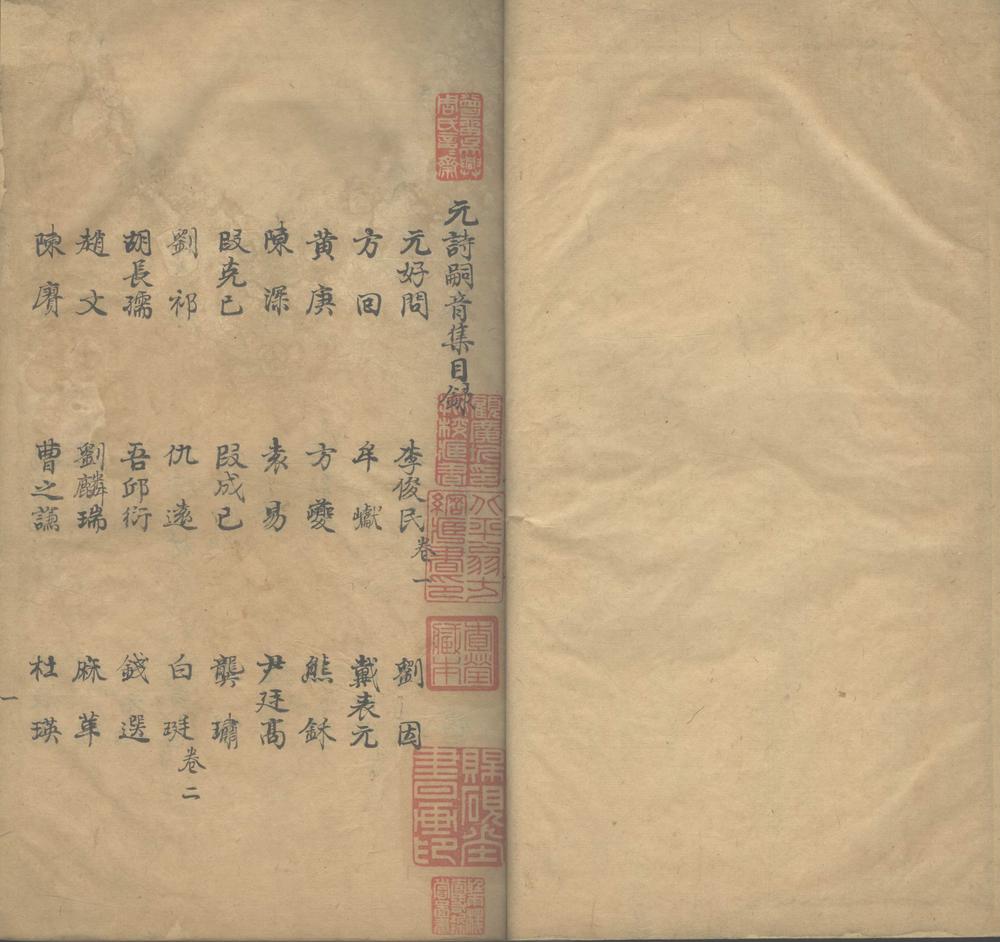 元詩嗣音集目錄
元好問 李俊民卷一 劉因
方回 牟巘 戴表元
黃庚 方夔 熊鉌
陳深 袁易 尹廷高
段克已 段成已 龔璛
劉祁 仇遠 白珽卷二
胡長孺 吾邱衍 錢選
趙文 劉麟瑞 麻革
陳賡 曹之謙 杜瑛
一
賜硯堂書畫印